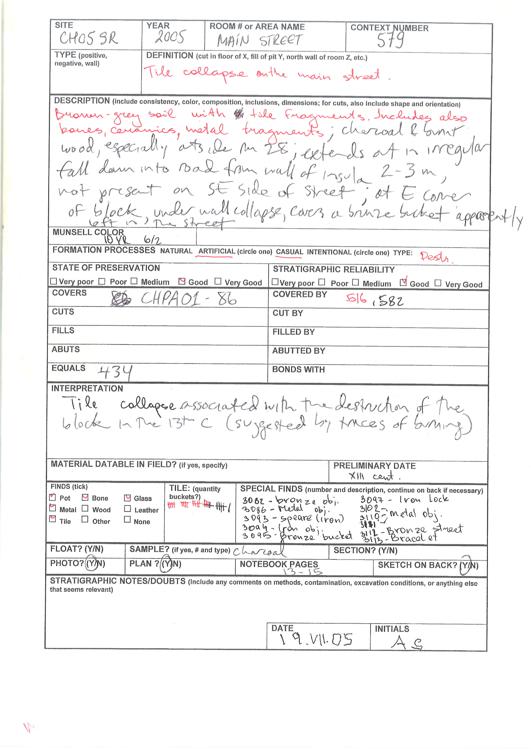 SITE YEAR ROOM # or AREA NAME CONTEXT NUMBER
CH05 SR 2005 MAIN STREET 579
TYPE (positive, negative, wall) DEFINITION (cut in floor of X, fill of pit Y, north wall of room Z, etc.)
Tile collapse on the main street.
DESCRIPTION (include consistency, color, composition, inclusions, dimensions; for cuts, also include shape and orientation)
Brown-grey soil with tile fragments. Includes also
bones, ceramics, metal fragments; charcoal & burnt
wood, especially outside Rm 28; extends out in irregular
fall down into road from wall of insula 2-3 m,
not present on SE side of street; at E corner
of block, under wall collapse, covers a bronze bucket apparently
left in the street
MUNSELL COLOR
10YR 6/2
FORMATION PROCESSES NATURAL ARTIFICIAL (circle one) CASUAL INTENTIONAL (circle one) TYPE: Destr.
STATE OF PRESERVATION STRATIGRAPHIC RELIABILITY
Very poor Poor Medium Good Very Good Very poor Poor Medium Good Very Good
COVERS CHPA01-86 COVERED BY 516, 582
CUTS CUT BY
FILLS FILLED BY
ABUTS ABUTTED BY
EQUALS 434 BONDS WITH
INTERPRETATION
Tile collapse associated with the destruction of the
block in the 13th C (suggested by traces of burning)
MATERIAL DATABLE IN FIELD? (if yes, specify) PRELIMINARY DATE
XIII cent.
FINDS (tick) TILE: (quantity buckets?) SPECIAL FINDS (number and description, continue on back if necessary)
Pot Bone Glass
Metal Wood Leather
Tile Other None
3082 - bronze obj.
3086 - Metal obj.
3093 - speare (iron)
3094 - Iron obj.
3095 - Bronze bucket
3097 - Iron lock
3102
3110 - metal obj.
3111
3112 - Bronze street
3113 - Bracelet
FLOAT? (Y/N) SAMPLE? (if yes, # and type) charcoal SECTION? (Y/N)
PHOTO? (Y/N) PLAN? (Y/N) NOTEBOOK PAGES 13-15 SKETCH ON BACK? (Y/N)
STRATIGRAPHIC NOTES/DOUBTS (Include any comments on methods, contamination, excavation conditions, or anything else that seems relevant)
DATE INITIALS
19.VII.05 AG